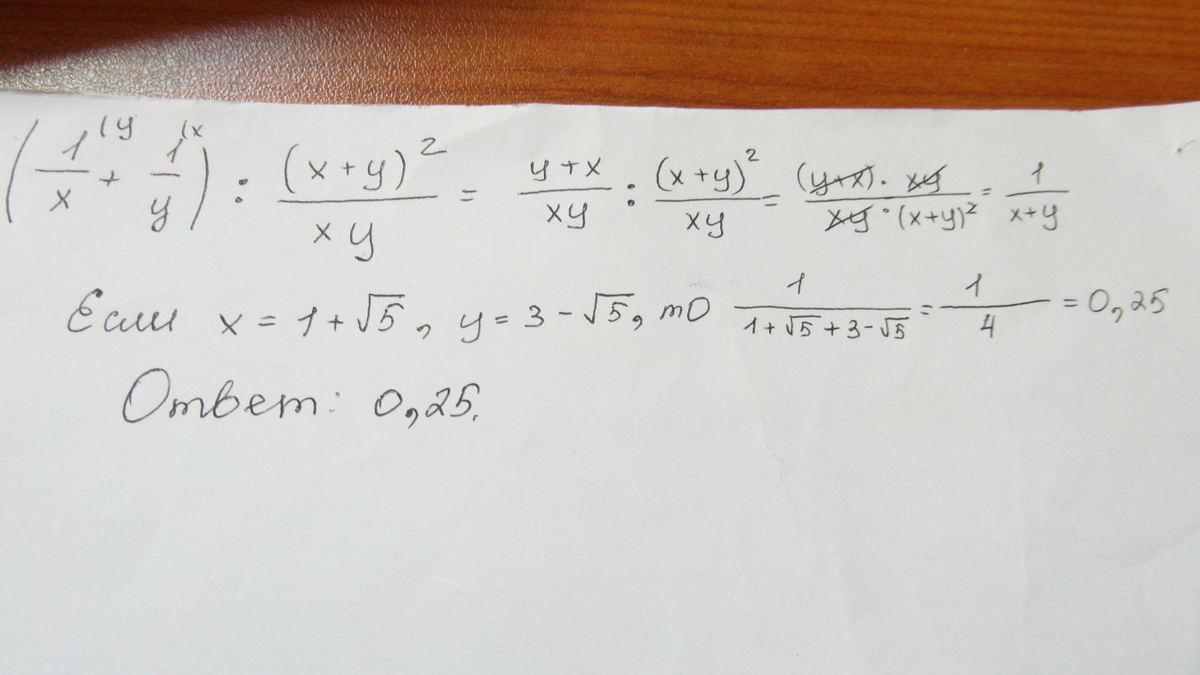 (1/x (y + 1/y (x) : (x+y)²/xy = y+x/xy : (x+y)²/xy = (y+x)·xy/xy·(x+y)² = 1/x+y
Если x = 1+√5, y = 3-√5, то 1/1+√5+3-√5 = 1/4 = 0,25
Ответ: 0,25.